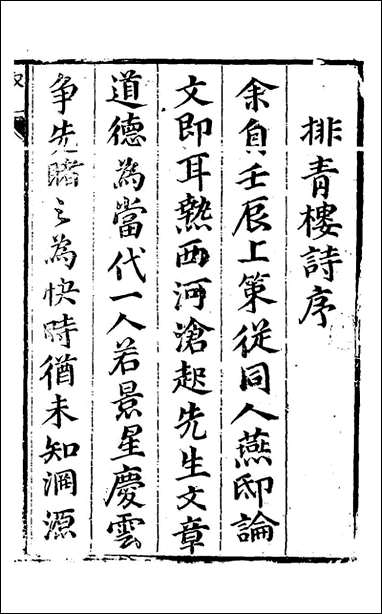 排青樓詩序
余自壬辰上策從同人燕邸論
文即耳熱西河滄起先生文章
道德為當代一人若景星慶雲
争先睹之為快時猶未知淵源